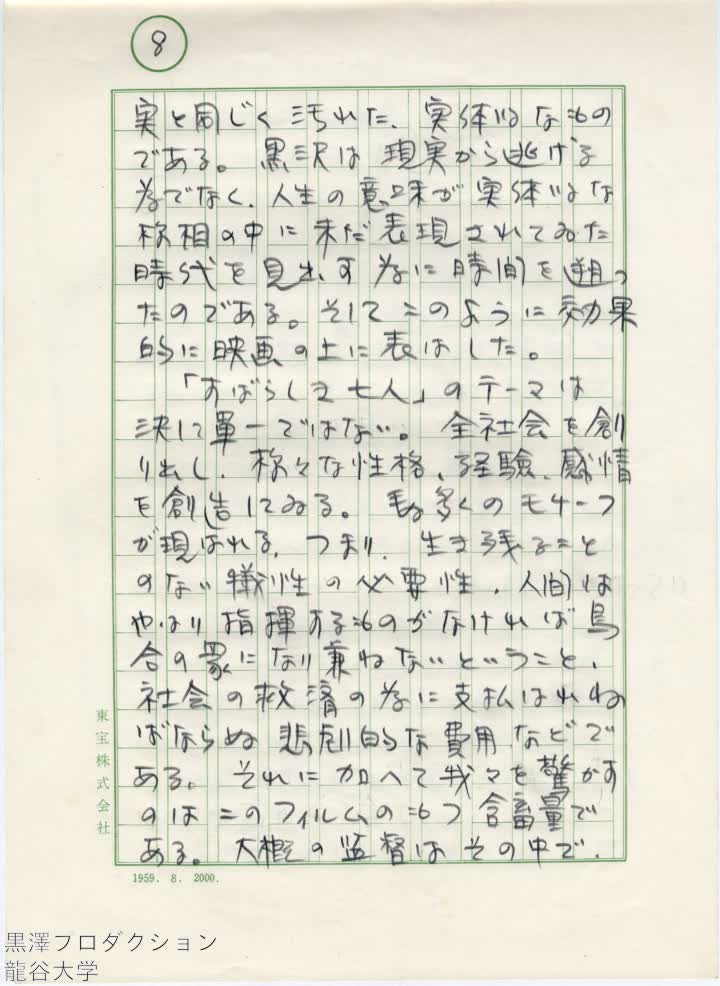 8
実と同じく汚れた、実体的なもの
である。黒沢は現実から逃げる
為でなく、人生の意味が実体的な
様相の中に未だ表現されてゐた
時代を見出す為に時間を遡っ
たのである。そしてこのように効果
的に映画の上に表はした。
「すばらしき七人」のテーマは
決して単一ではない。全社会を創
り出し、様々な性格、経験、感情
を創造してゐる。も多くのモチーフ
が現はれる、つまり、生き残ること
のない犠性の必要性、人間は
やはり指揮するものがなければ烏
合の衆になり兼ねないといふこと、
社会の救済の為に支払はれね
ばならぬ悲劇的な費用などで
ある。それに加へて我々を驚かす
のはこのフィルムのもつ含畜量で
ある。大概の監督はその中で、
東宝株式会社
1959. 8. 2000.
黒澤プロダクション
龍谷大学